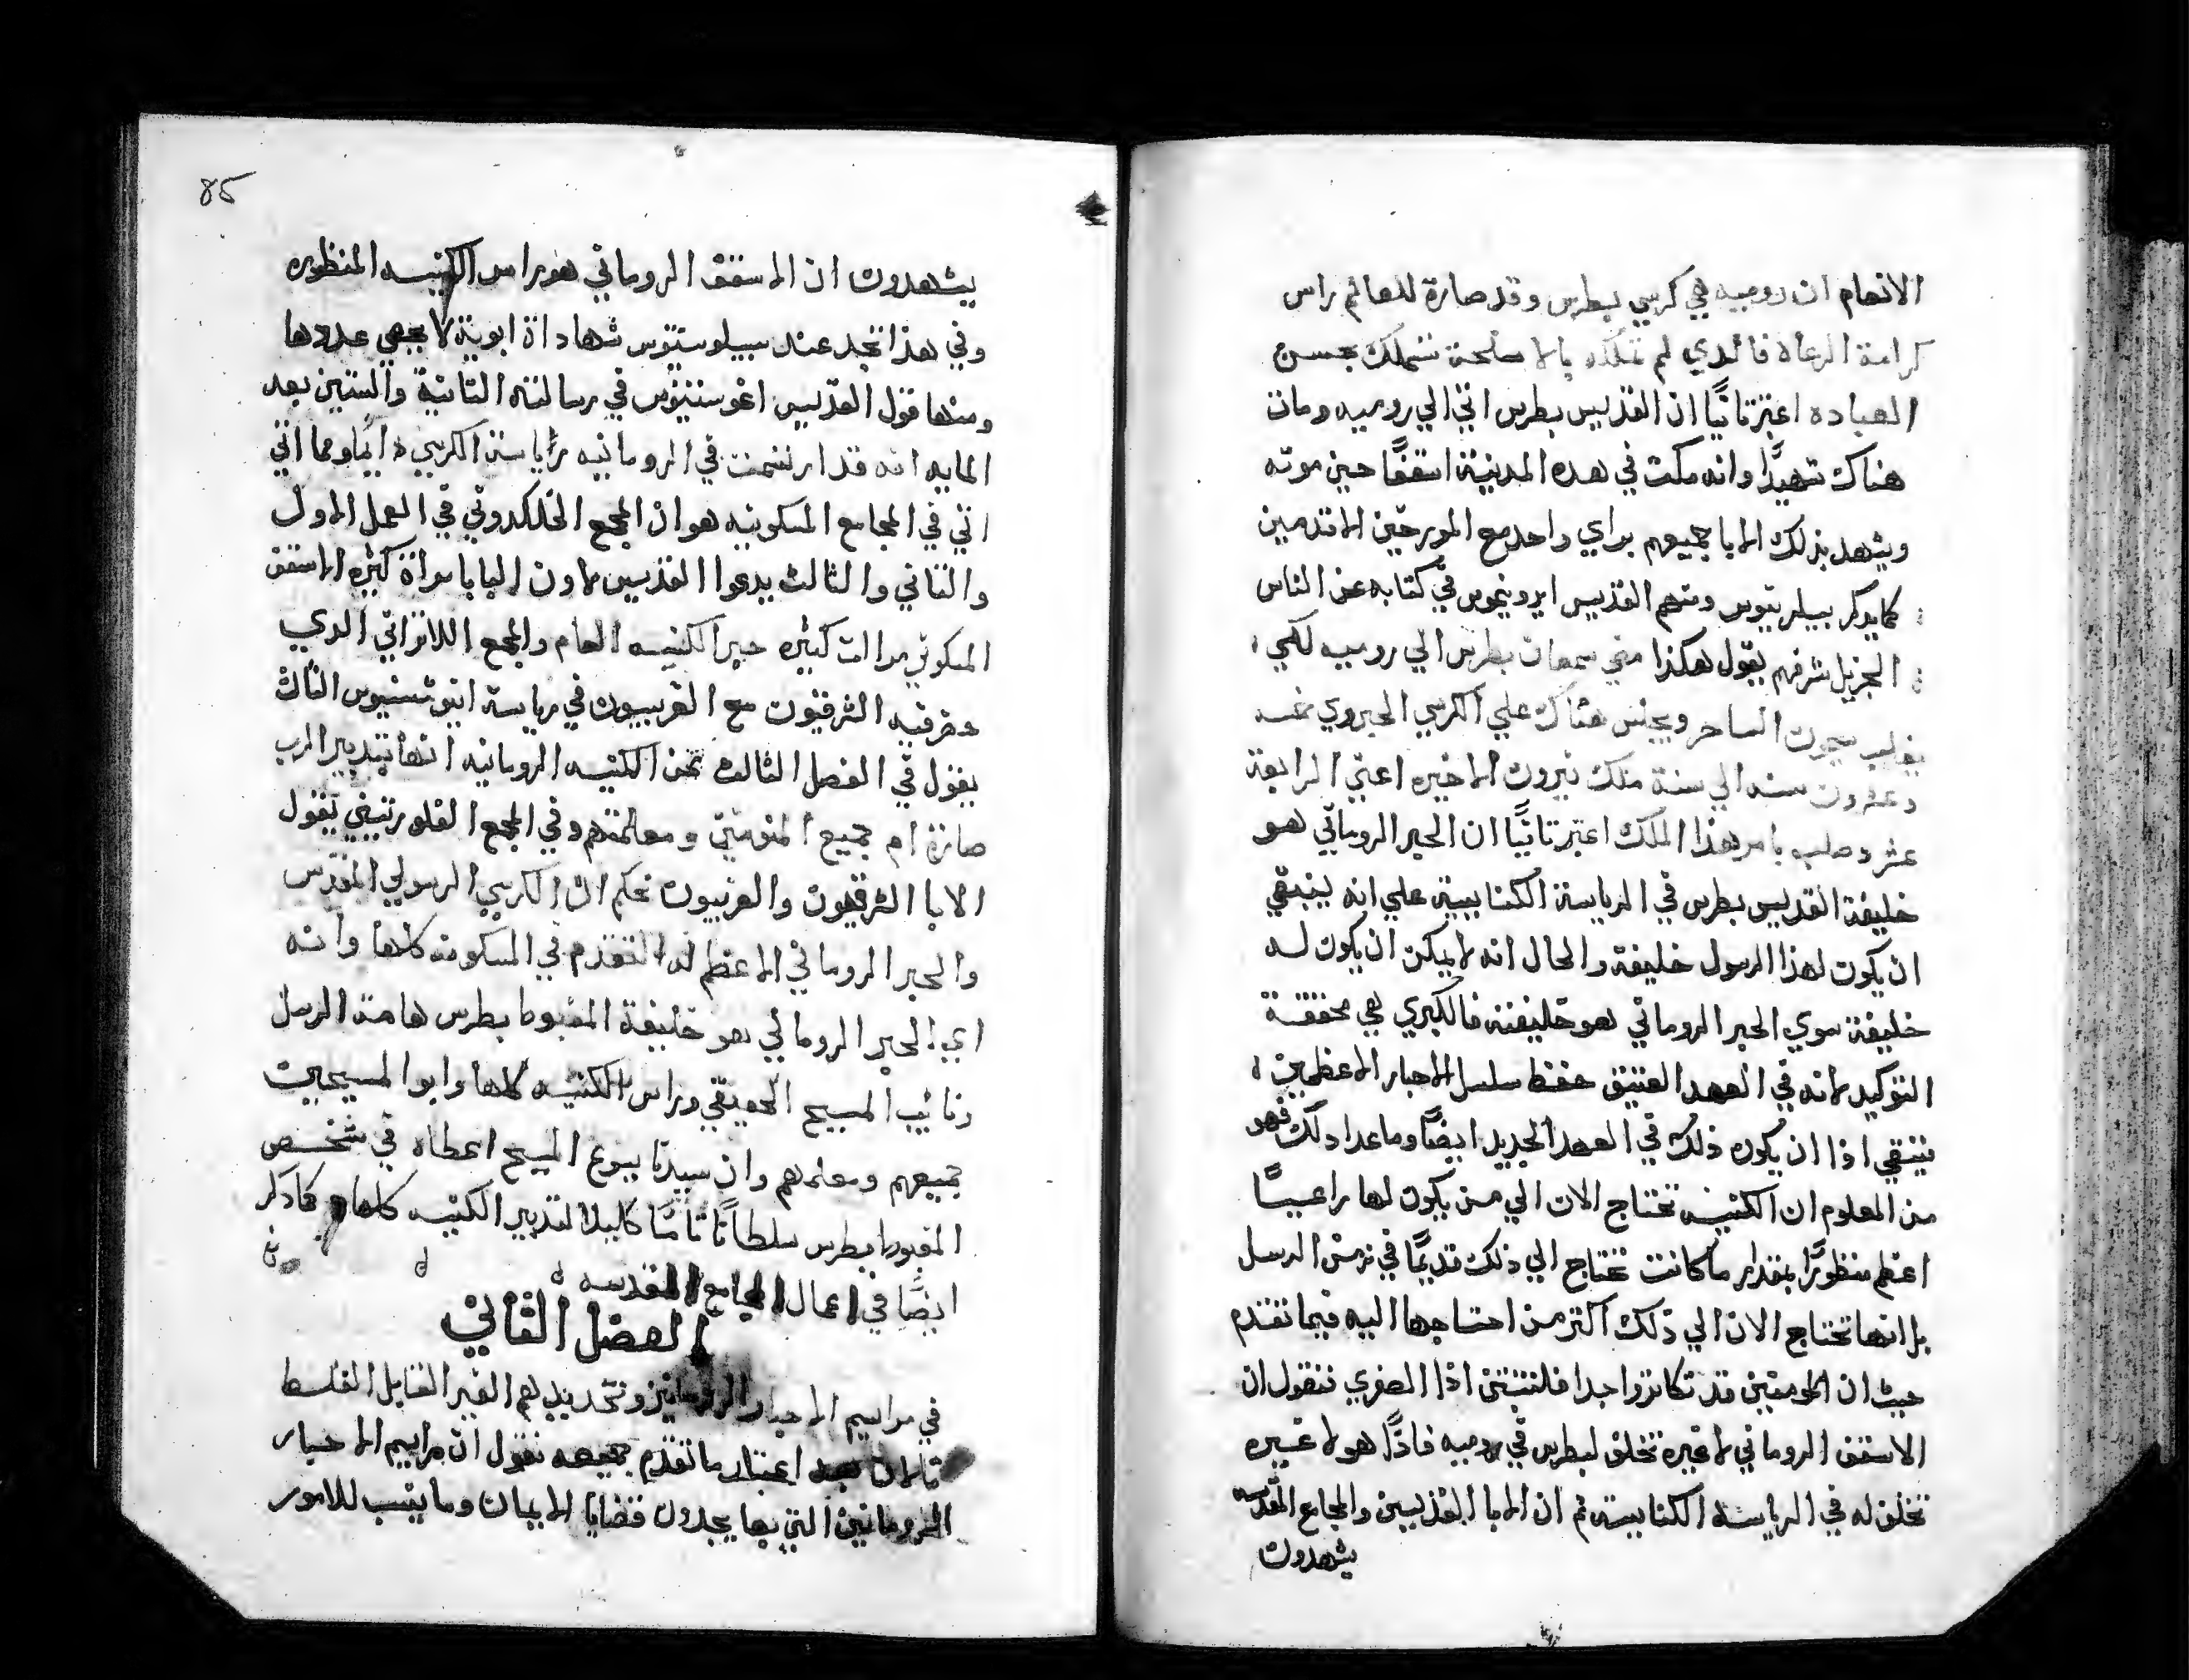 الانعام ان روميه هي كرسي بطرس وقد صارة للعالم راس
كرامة الرعاة فالذي لم تملكه بالاسلحة تتملك بحسن
العباده اعتبر ثانيًا ان القديس بطرس اتي الي روميه ومات
هناك شهيدًا وانه مكث في هده المدينة اسقفًا حين موته
ويشهد بذلك الابا جميعهم براي واحد مع المورخين الاقدمين
كما يدكر بيلرتيوس ومنهم القديس ايرونيموس في كتابه عن الناس
الجزيل شرفهم يقول هكذا مضي سمعان بطرس الي روميه لكي
يغلب سيمون الساحر ويجلس هناك علي الكرسي الحبروي خمسه
وعشرون سنه الي سنة ملك نيرون الاخيره اعني الرابعة
عشر وصلب بامر هذا الملك اعتبر ثانيًا ان الحبر الروماني هو
خليفة القديس بطرس في الرياسة الكنايسية علي انه ينبقي
ان يكون لهذا الرسول خليفة والحال انه لا يمكن ان يكون له
خليفة سوي الحبر الروماني هو خليفته فالكبري هي محققة
التوكيد لانه في العهد العتيق حفظ سلسل الاحبار الاعظمين
فينبقي اذا ان يكون ذلك في العهد الجديد ايضًا وما عدا دلك فهو
من المعلوم ان الكنيسه تحتاج الان الي من يكون لها راعيًا
اعظم منظورًا بمقدار ما كانت تحتاج الي ذلك قديمًا في زمن الرسل
بل انها تحتاج الان الي ذلك اكثر من احتياجها اليه فيما تقدم
حيث ان المومنين قد تكاثروا جدا فلنثبتن اذا الصغري فنقول ان
الاسقف الروماني لا غيره تخلف لبطرس في روميه فاذًا هو لا غيره
تخلف له في الرياسه الكنايسية ثم ان الابا القديسين والمجامع المقدسه
يشهدون
85
يشهدون ان الاسقف الروماني هو راس الكنيسه المنظوره
وفي هذا تجد عند سيلوستوس شهاداة ابوية لا يحصي عددها
ومنها قول القديس اغوستينوس في رسالته الثانية والستين بعد
المايه انه قد ارتسمت في الرومانيه راياسة الكرسي دايما ومما اتي
اتي في المجامع المسكونيه هو ان المجمع الخلكدوني في العمل الاول
والثاني والثالث يدعوا القديس لاون البابا مراة كثيره الاسقف
المسكوني مرات كثيره حبر الكنيسه العام والمجمع اللاتراني الدي
حضرفيه الشرقيون مع الغربيون في رياسة اينوشنسيوس الثالث
يقول في الفصل الثالث نحن الكنيسه الرومانيه انها بتدبير الرب
صارة ام جميع المومنين ومعلمتهم وفي المجمع الفلورنتيني يقول
الابا الشرقيون والغربيون نحكم ان الكرسي الرسولي المقدس
والحبر الروماني الاعظم له التقدم في المسكونه كلها وانه
اي الحبر الروماني هو خليفة المغبوط بطرس هامة الرسل
ونايب المسيح الحقيقي وراس الكنيسه كلها وابو المسيحيين
جميعهم ومعلمهم وان سيدنا يسوع المسيح اعطاه في شخص
المغبوط بطرس سلطانًا تامًا كاملا لتدبير الكنيسه كلها كما دكر
ايضًا في اعمال المجامع المقدسه
الفصل الثاني
في مراسيم الاحبار الرومانيين وتحديدهم الغير القابل الغلط
ثالثا بعد اعتبار ما تقدم جميعه نقول ان مراسيم الاحبار
الرومانيين التي بها يحددون قضايا الايمان وما ينسب للامور